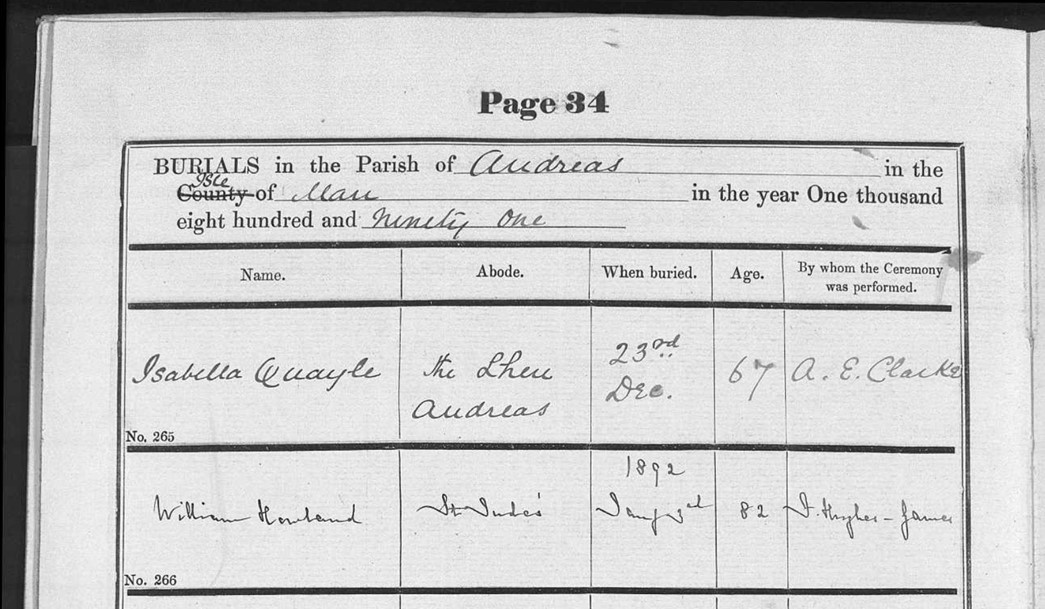 Page 34
BURIALS in the Parish of Andreas in the
Isle
County of Man in the year One thousand
eight hundred and Ninety One
Name. Abode. When buried. Age. By whom the Ceremony was performed.
Isabella Quayle the Lhen Andreas 23rd Dec. 67 A. E. Clarke
No. 265
William Howland St Jude's 1892 Jany 3rd 82 Hughes-Games
No. 266